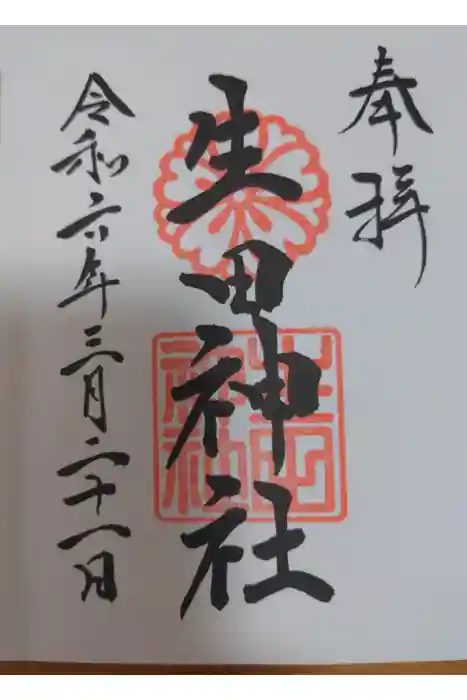 奉拝
生田神社
生田神社
令和六年三月二十一日